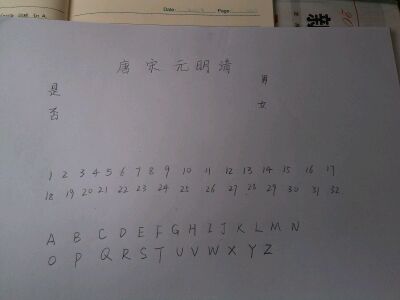 Date
Page
唐宋元明清
是 男
否 女
1 2 3 4 5 6 7 8 9 10 11 12 13 14 15 16 17
18 19 20 21 22 23 24 25 26 27 28 29 30 31 32
A B C D E F G H I J K L M N
O P Q R S T U V W X Y Z